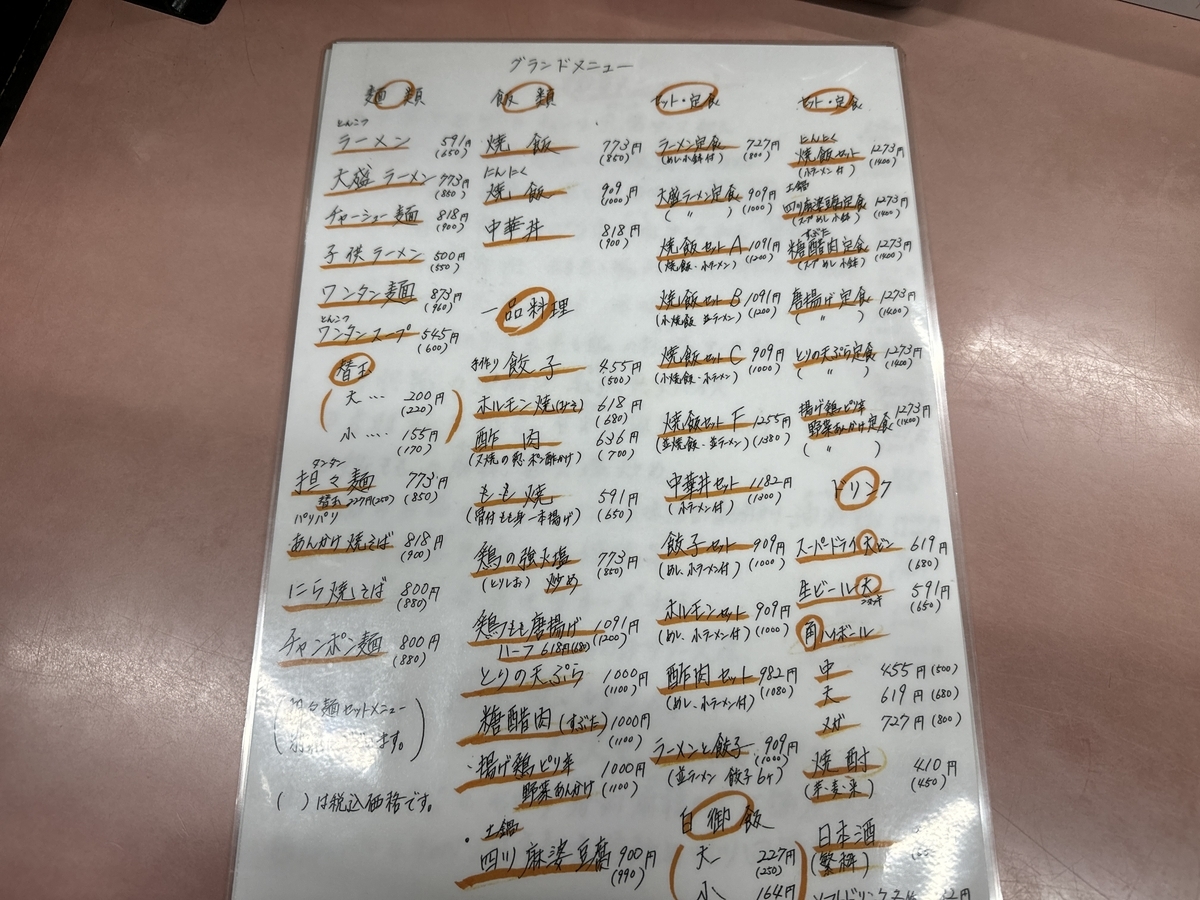 グランドメニュー
麺類
とんこつ
ラーメン 591円
(650)
大盛ラーメン 773円
(850)
チャーシュー麺 818円
(900)
子供ラーメン 500円
(550)
ワンタン麺 873円
(960)
とんこつ
ワンタンスープ 545円
(600)
替玉
大… 200円
(220)
小…. 155円
(170)
タンタン
担々麺 773円
(850)
替玉 227円(250)
パリパリ
あんかけ焼そば 818円
(900)
にら焼そば 800円
(880)
チャンポン麺 800円
(880)
担々麺セットメニュー
ます。
( )は税込価格です。
飯類
焼飯 773円
(850)
にんにく
焼飯 909円
(1000)
中華丼 818円
(900)
一品料理
手作り餃子 455円
(500)
ホルモン焼(みそ) 618円
(680)
酢肉 636円
(700)
ポン酢かけ)
もも焼 591円
(骨付もも身一本揚げ) (650)
鶏の強火塩 773円
(とりしお) 炒め (850)
鶏もも唐揚げ 1091円
ハーフ 618円(680) (1200)
とりの天ぷら 1000円
(1100)
糖醋肉(すぶた) 1000円
(1100)
・揚げ鶏ピリ辛 1000円
野菜あんかけ (1100)
・土鍋
四川麻婆豆腐 900円
(990)
セット・定食
ラーメン定食 727円
(めし小鉢付) (800)
大盛ラーメン定食 909円
( 〃 ) (1000)
焼飯セットA 1091円
(焼飯・小ラーメン) (1200)
焼飯セットB 1091円
(小焼飯 並ラーメン) (1200)
焼飯セットC 909円
(小焼飯・小ラーメン) (1000)
焼飯セットF 1255円
(並焼飯・並ラーメン) (1380)
中華丼セット 1182円
(小ラーメン付) (1300)
餃子セット 909円
(めし、小ラーメン付) (1000)
ホルモンセット 909円
(めし、小ラーメン付) (1000)
酢肉セット 982円
(めし、小ラーメン付) (1080)
ラーメンと餃子 909円
(並ラーメン 餃子6ヶ) (1000)
白御飯
大 227円
(250)
小 164円
セット・定食
にんにく
焼飯セット 1273円
(小ラーメン付) (1400)
土鍋
四川麻婆豆腐定食 1273円
(スープめし小鉢) (1400)
すぶた
糖醋肉定食 1273円
(スープめし小鉢) (1400)
唐揚げ定食 1273円
( 〃 ) (1400)
とりの天ぷら定食 1273円
( 〃 ) (1400)
揚げ鶏ピリ辛 1273円
野菜あんかけ定食 (1400)
( 〃 )
ドリンク
スーパードライ大ビン 619円
(680)
生ビール大 591円
(650)
角ハイボール
中 455円(500)
大 619円(680)
メガ 727円(800)
焼酎 410円
(芋・麦・米) (450)
日本酒
(繁桝)